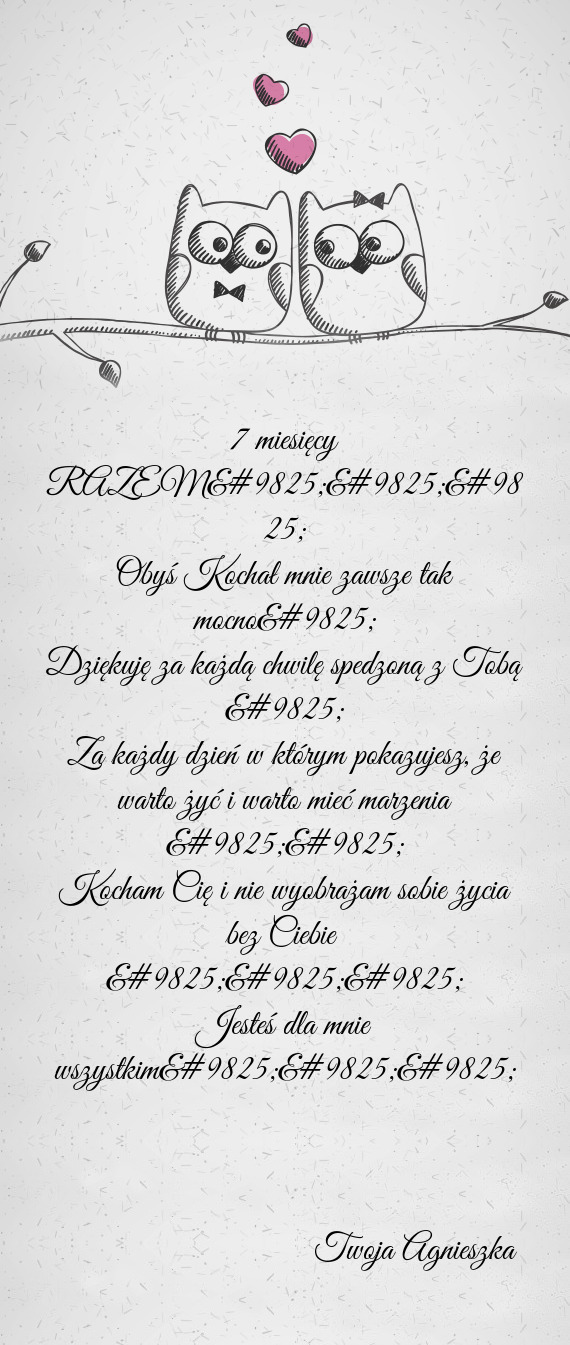 7 miesięcy
RAZEM&#9825;&#9825;&#98
25;
Obyś Kochał mnie zawsze tak
mocno&#9825;
Dziękuję za każdą chwilę spedzoną z Tobą
&#9825;
Za każdy dzień w którym pokazujesz, że
warto żyć i warto mieć marzenia
&#9825;&#9825;
Kocham Cię i nie wyobrażam sobie życia
bez Ciebie
&#9825;&#9825;&#9825;
Jesteś dla mnie
wszystkim&#9825;&#9825;&#9825;
Twoja Agnieszka